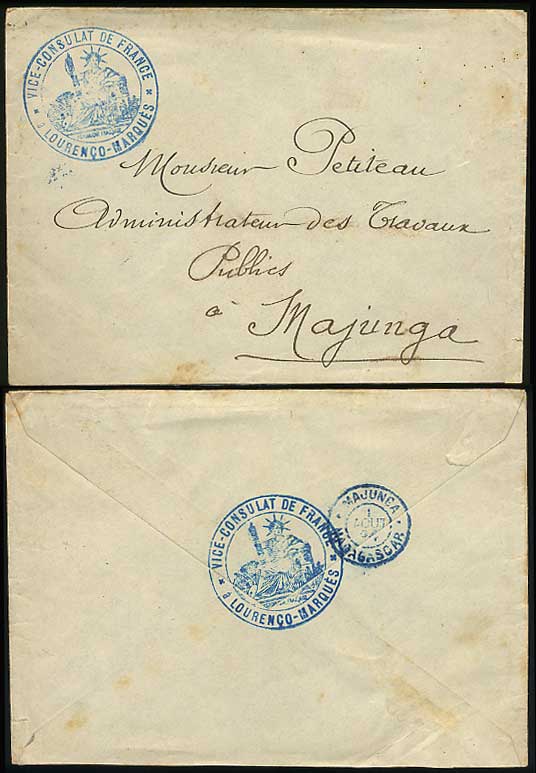 VICE-CONSULAT DE FRANCE
à LOURENÇO-MARQUES
Monsieur Petiteau
Administrateur des Travaux
Publics
à Majunga
VICE-CONSULAT DE FRANCE
à LOURENÇO-MARQUES
MAJUNGA
1
AOUT
MADAGASCAR